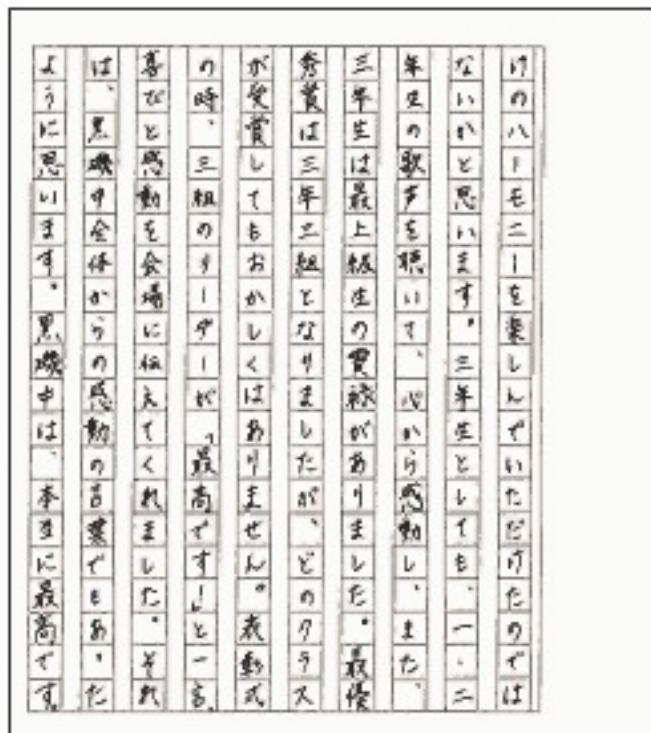 けのハーモニーを楽しんでいただけたのでは
ないかと思います。三年生としても、一、二
年生の歌声を聴いて、心から感動し、また、
三年生は最上級生の貫禄がありました。最優
秀賞は三年三組となりましたが、どのクラス
が受賞してもおかしくはありません。表彰式
の時、三組のリーダーが、「最高です！」と一言、
喜びと感動を会場に伝えてくれました。それ
は、黒磯中全体からの感動の言葉でもあった
ように思います。黒磯中は、本当に最高です。